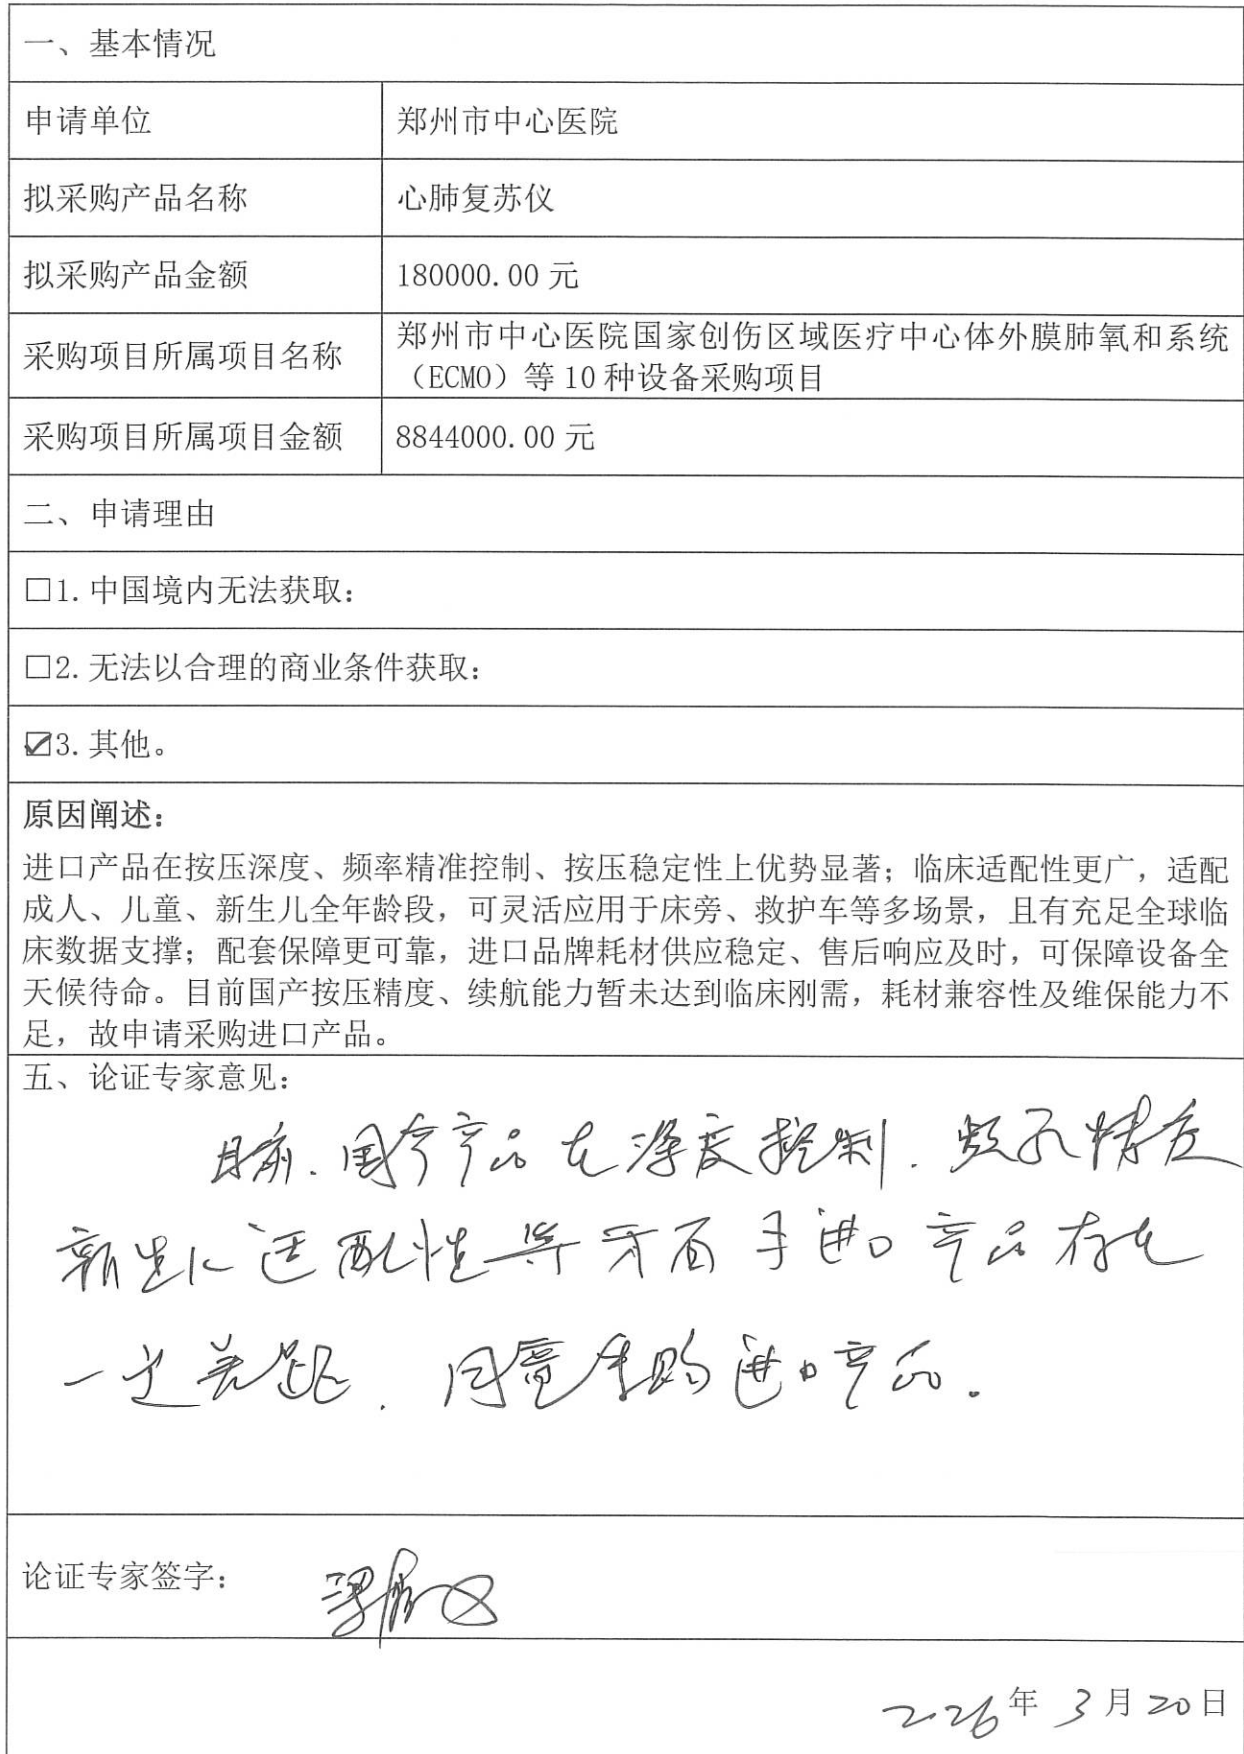 一、基本情况
申请单位 郑州市中心医院
拟采购产品名称 心肺复苏仪
拟采购产品金额 180000.00 元
采购项目所属项目名称 郑州市中心医院国家创伤区域医疗中心体外膜肺氧和系统
（ECMO）等 10 种设备采购项目
采购项目所属项目金额 8844000.00 元
二、申请理由
□1.中国境内无法获取：
□2.无法以合理的商业条件获取：
☑3.其他。
原因阐述：
进口产品在按压深度、频率精准控制、按压稳定性上优势显著；临床适配性更广，适配
成人、儿童、新生儿全年龄段，可灵活应用于床旁、救护车等多场景，且有充足全球临
床数据支撑；配套保障更可靠，进口品牌耗材供应稳定、售后响应及时，可保障设备全
天候待命。目前国产按压精度、续航能力暂未达到临床刚需，耗材兼容性及维保能力不
足，故申请采购进口产品。
五、论证专家意见：
目前.国产产品在深度控制.频率精度
新生儿适配性等方面与进口产品存在
一定差距.同意采购进口产品.
论证专家签字：
2026年 3月20日